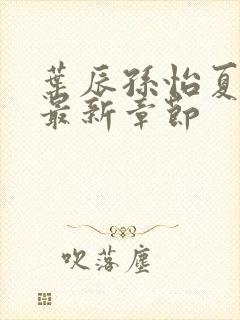 葉辰孫怡夏
最新章節
吹落塵